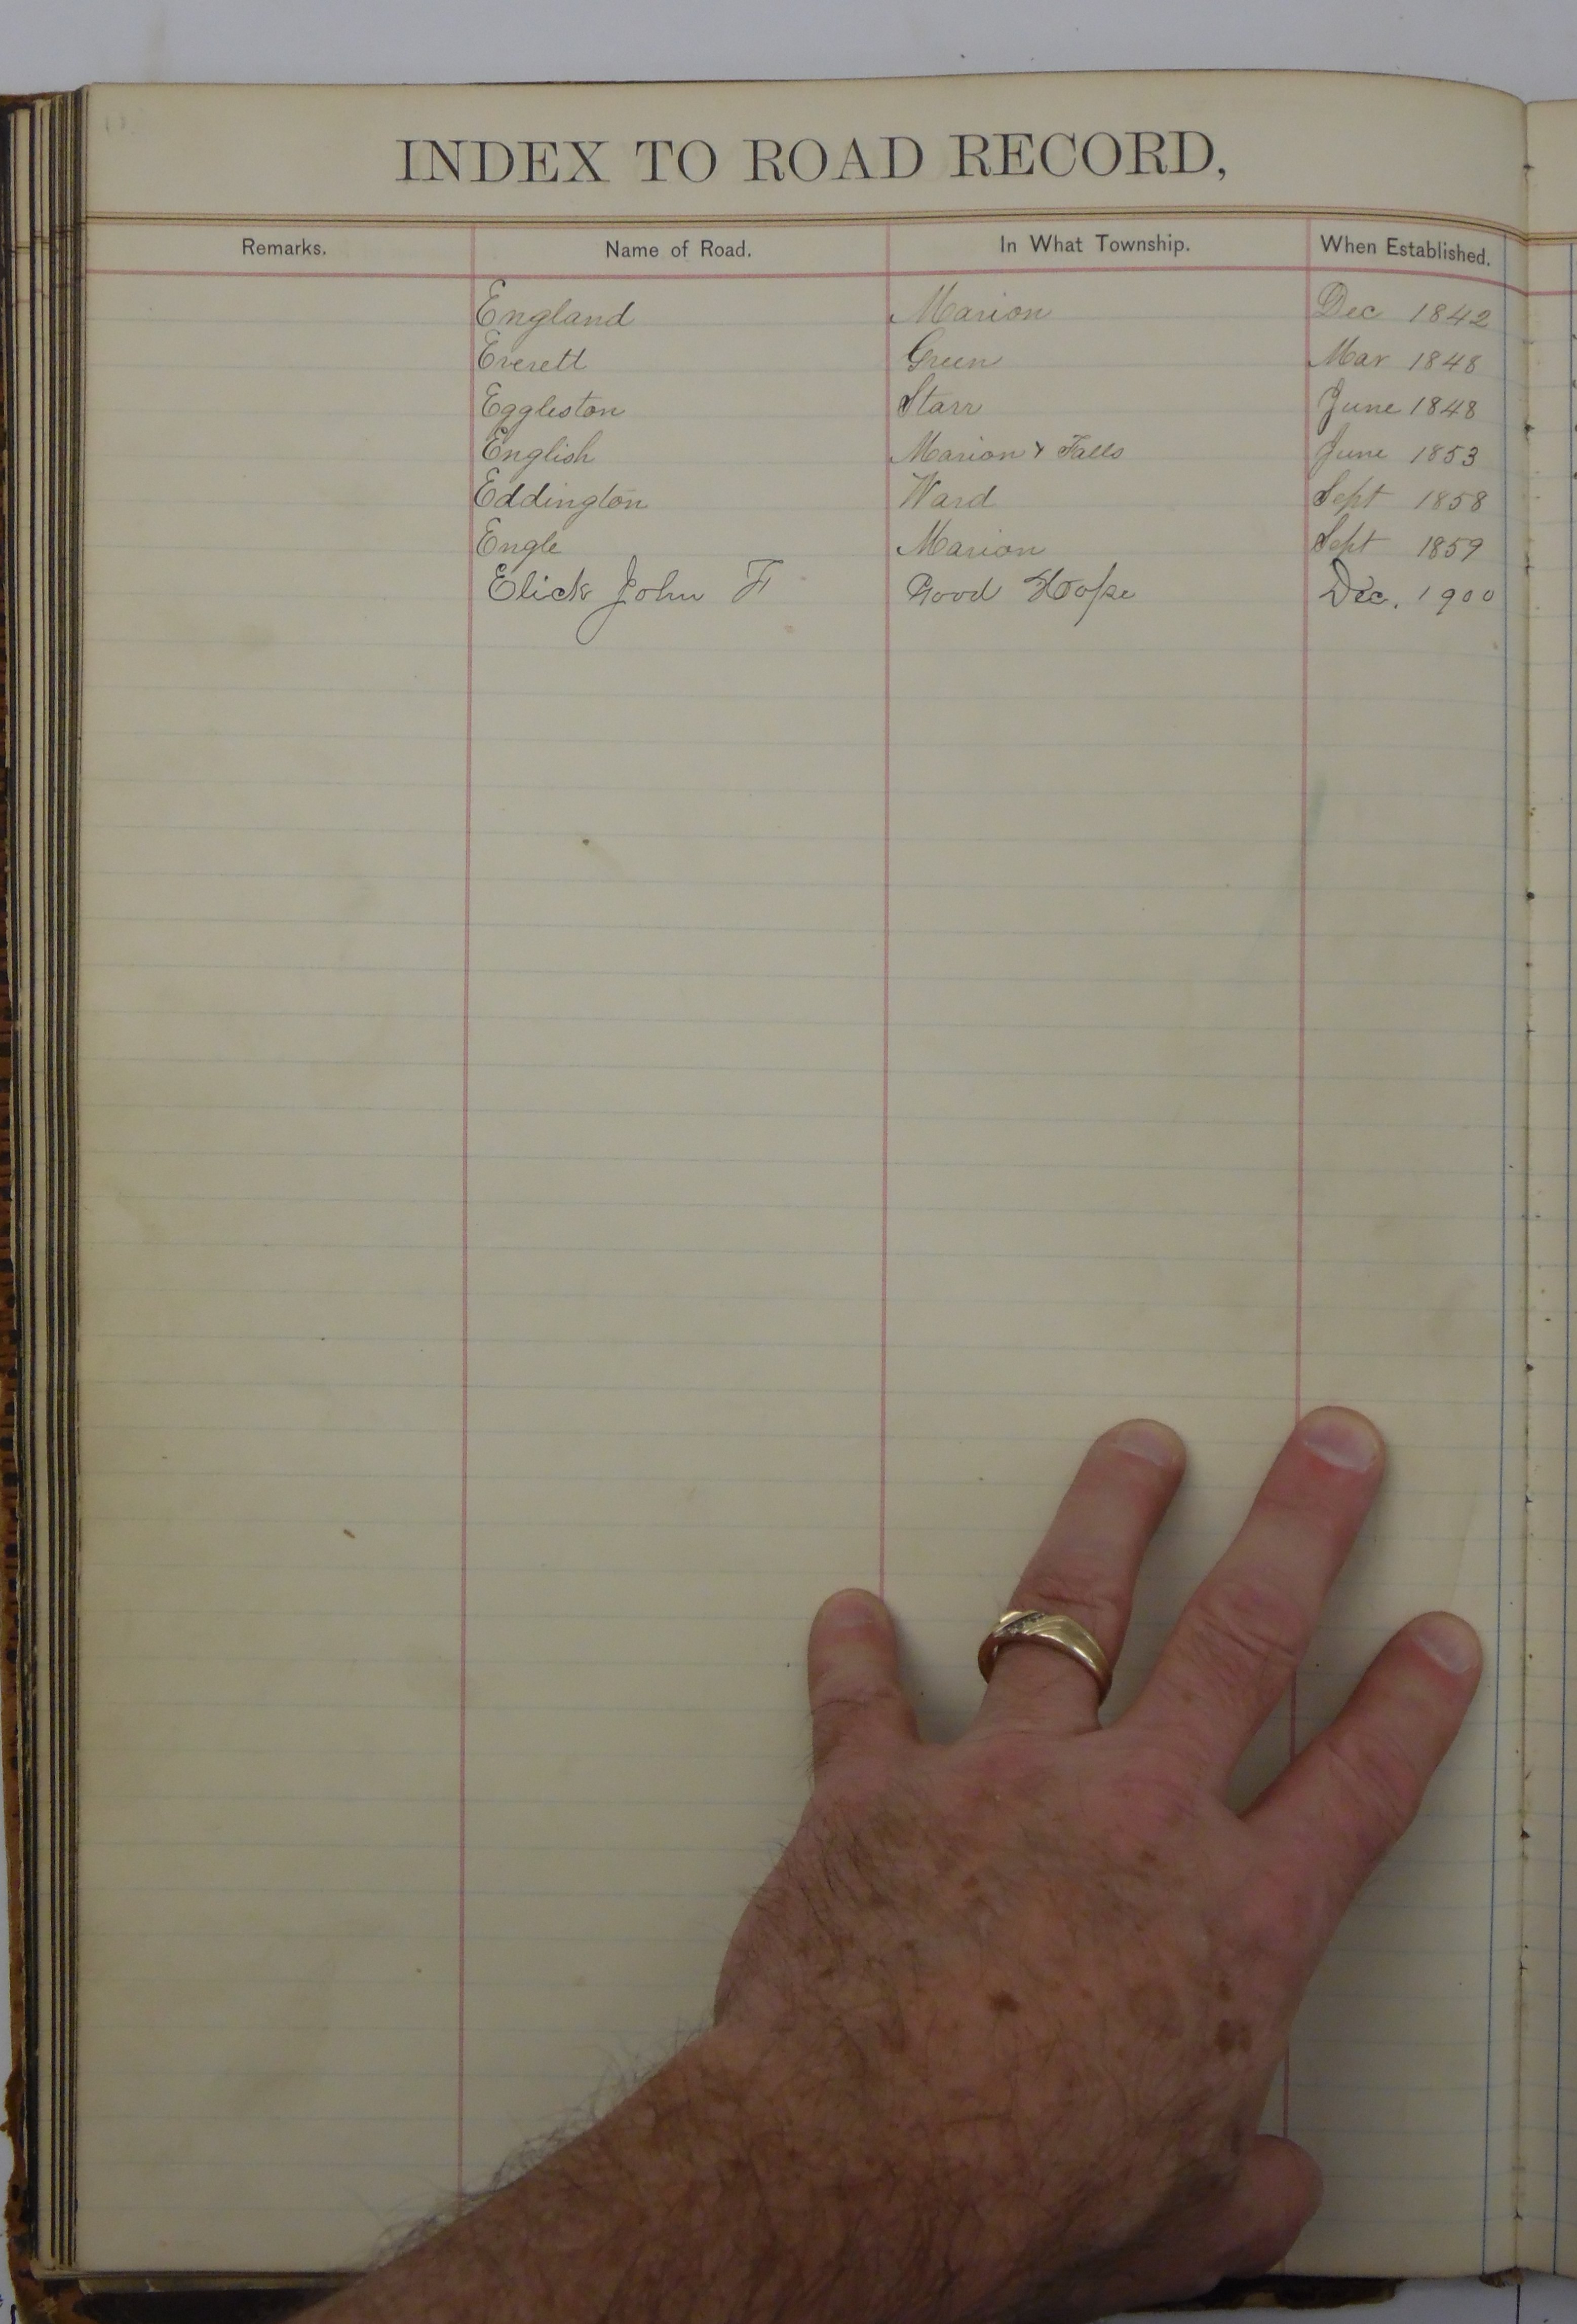 INDEX TO ROAD RECORD,
Remarks. Name of Road. In What Township. When Established.
England Marion Dec 1842
Everett Green Mar 1848
Eggleston Starr June 1848
English Marion & Falls June 1853
Eddington Ward Sept 1858
Engle Marion Sept 1859
Elick John F Good Hope Dec. 1900